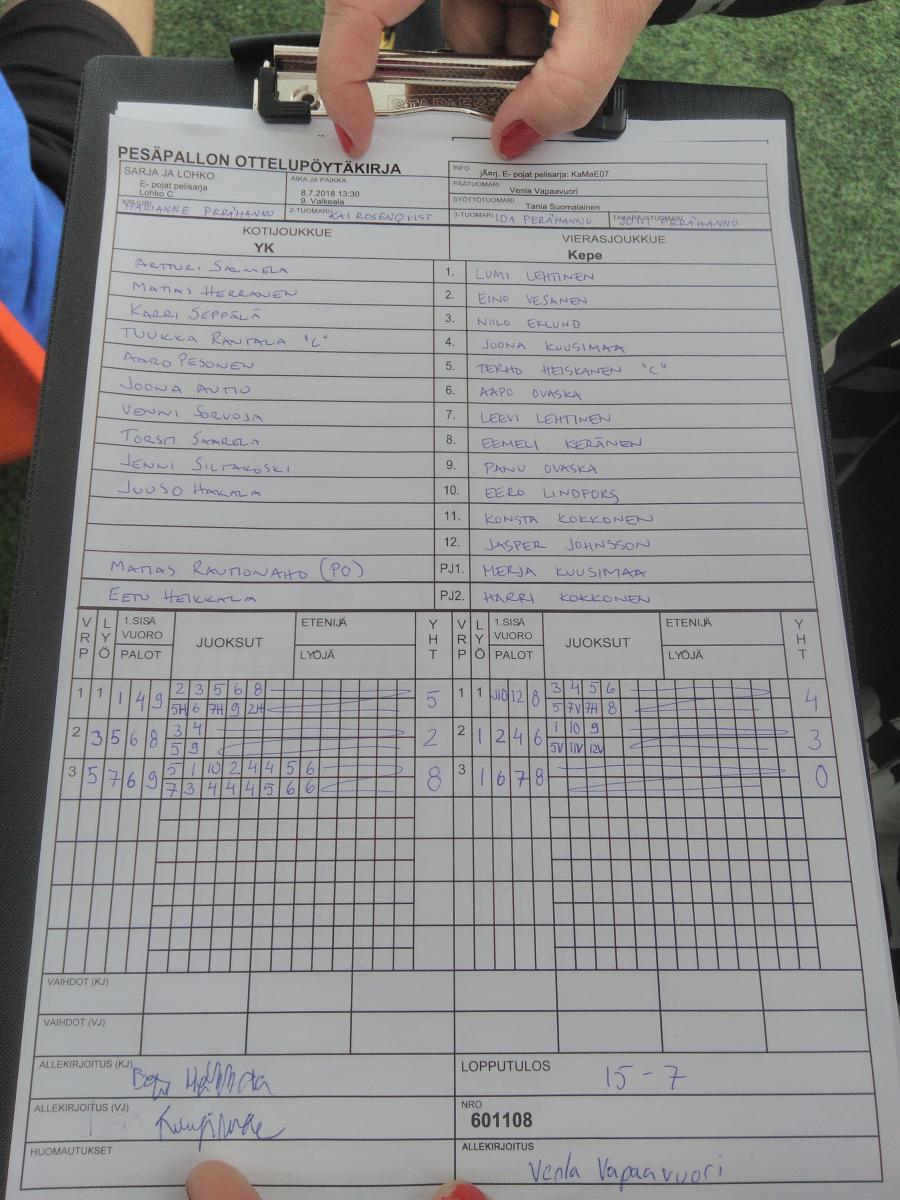 STAPLES
PESÄPALLON OTTELUPÖYTÄKIRJA
SARJA JA LOHKO
E- pojat pelisarja
Lohko C
AIKA JA PAIKKA
8.7.2018 13:30
9. Valkeala
INFO jÄ¤rj. E- pojat pelisarja: KaMaE07
PÄÄTUOMARI Venla Vapaavuori
SYÖTTÖTUOMARI Tania Suomalainen
KIRJURI MARIANNE PERÄHANNU
2-TUOMARI KAI ROSENQVIST
3-TUOMARI IDA PERÄHANNU
TAKARAJATUOMARI PERÄHANNU
KOTIJOUKKUE
YK
VIERASJOUKKUE
Kepe
ARTTURI SALMELA 1. LUMI LEHTINEN
MATIAS HERRANEN 2. EINO VESANEN
KARRI SEPPÄLÄ 3. NIILO EKLUND
TUUKKA RANTALA "C" 4. JOONA KUUSIMAA
AARO PESONEN 5. TERHO HEISKANEN "C"
JOONA AUTIO 6. AAPO OVASKA
VENNI SORVOJA 7. LEEVI LEHTINEN
TORSTI SAARELA 8. EEMELI KERÄNEN
JENNI SILTAKOSKI 9. PANU OVASKA
JUUSO HAKALA 10. EERO LINDFORS
11. KONSTA KOKKONEN
12. JASPER JOHNSSON
MATIAS RAUTIONAHO (PO) PJ1. MERJA KUUSIMAA
EETU HEIKKALA PJ2. HARRI KOKKONEN
VRP LYÖ 1.SISÄ VUORO PALOT JUOKSUT ETENIJÄ LYÖJÄ YHT VRP LYÖ 1.SISÄ VUORO PALOT JUOKSUT ETENIJÄ LYÖJÄ YHT
1 1 1 4 9 2 3 5 6 8 5 1 1 V10 12 8 3 4 5 6 4
5H 6 7H 9 2H 5 7V 7H 8
2 3 5 6 8 3 4 2 2 1 2 4 6 1 10 9 3
5 9 5V 11V 12V
3 5 7 6 9 5 1 10 2 4 4 5 6 8 3 1 6 7 8 0
7 3 4 4 4 5 6 6
VAIHDOT (KJ)
VAIHDOT (VJ)
ALLEKIRJOITUS (KJ)
LOPPUTULOS 15 - 7
ALLEKIRJOITUS (VJ)
NRO
601108
HUOMAUTUKSET
ALLEKIRJOITUS
Venla Vapaavuori